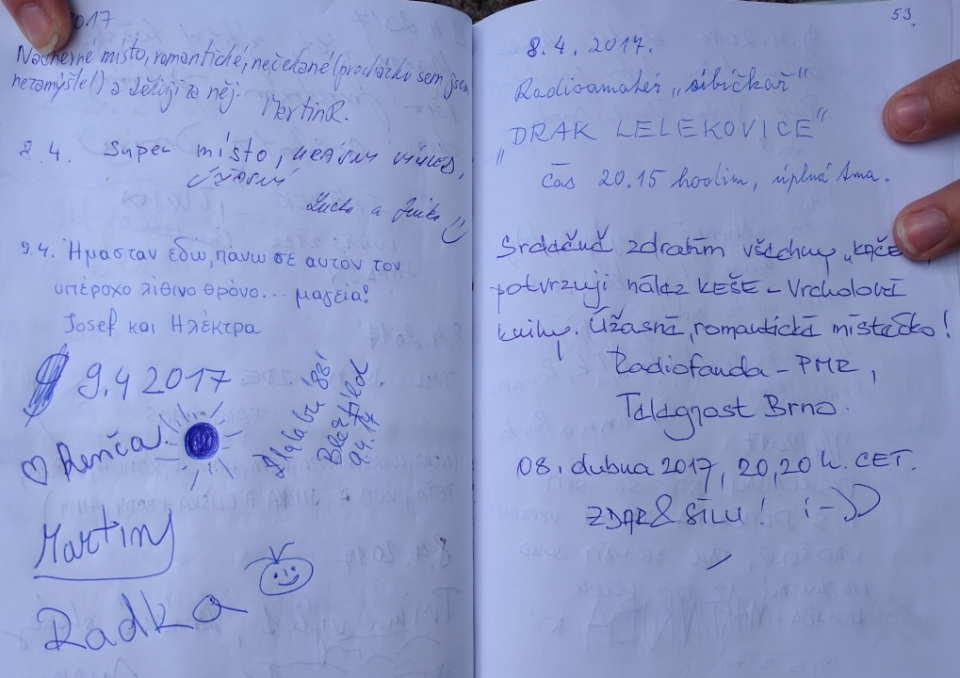 2017
Nádherné místo, romantické, nečekané (procházku sem jsem
nezamýšlel) a těším za něj. MartinR.
2.4. Super místo, krásný výhled,
úžasný
Lucka a Jirka
9.4. Ήμασταν εδώ, πάνω σε αυτόν τον
υπέροχο λίθινο θρόνο... μαγεία!
Josef και Ηλέκτρα
9.4 2017
Renča
9.4.17
Martin
Radka
53.
8.4.2017.
Radioamatér „síbíčkář"
„DRAK LELEKOVICE"
čas 20.15 hodin, úplná tma.
Srdečně zdravím všechny „KAČE
potvrzuji nález KEŠE - Vrcholové
knihy. Úžasná, romantická místečko!
Radiofanda - PMR,
Talagnost Brno.
08. dubna 2017, 20,20 h. CET.
ZDAR & SÍLU! ;-))